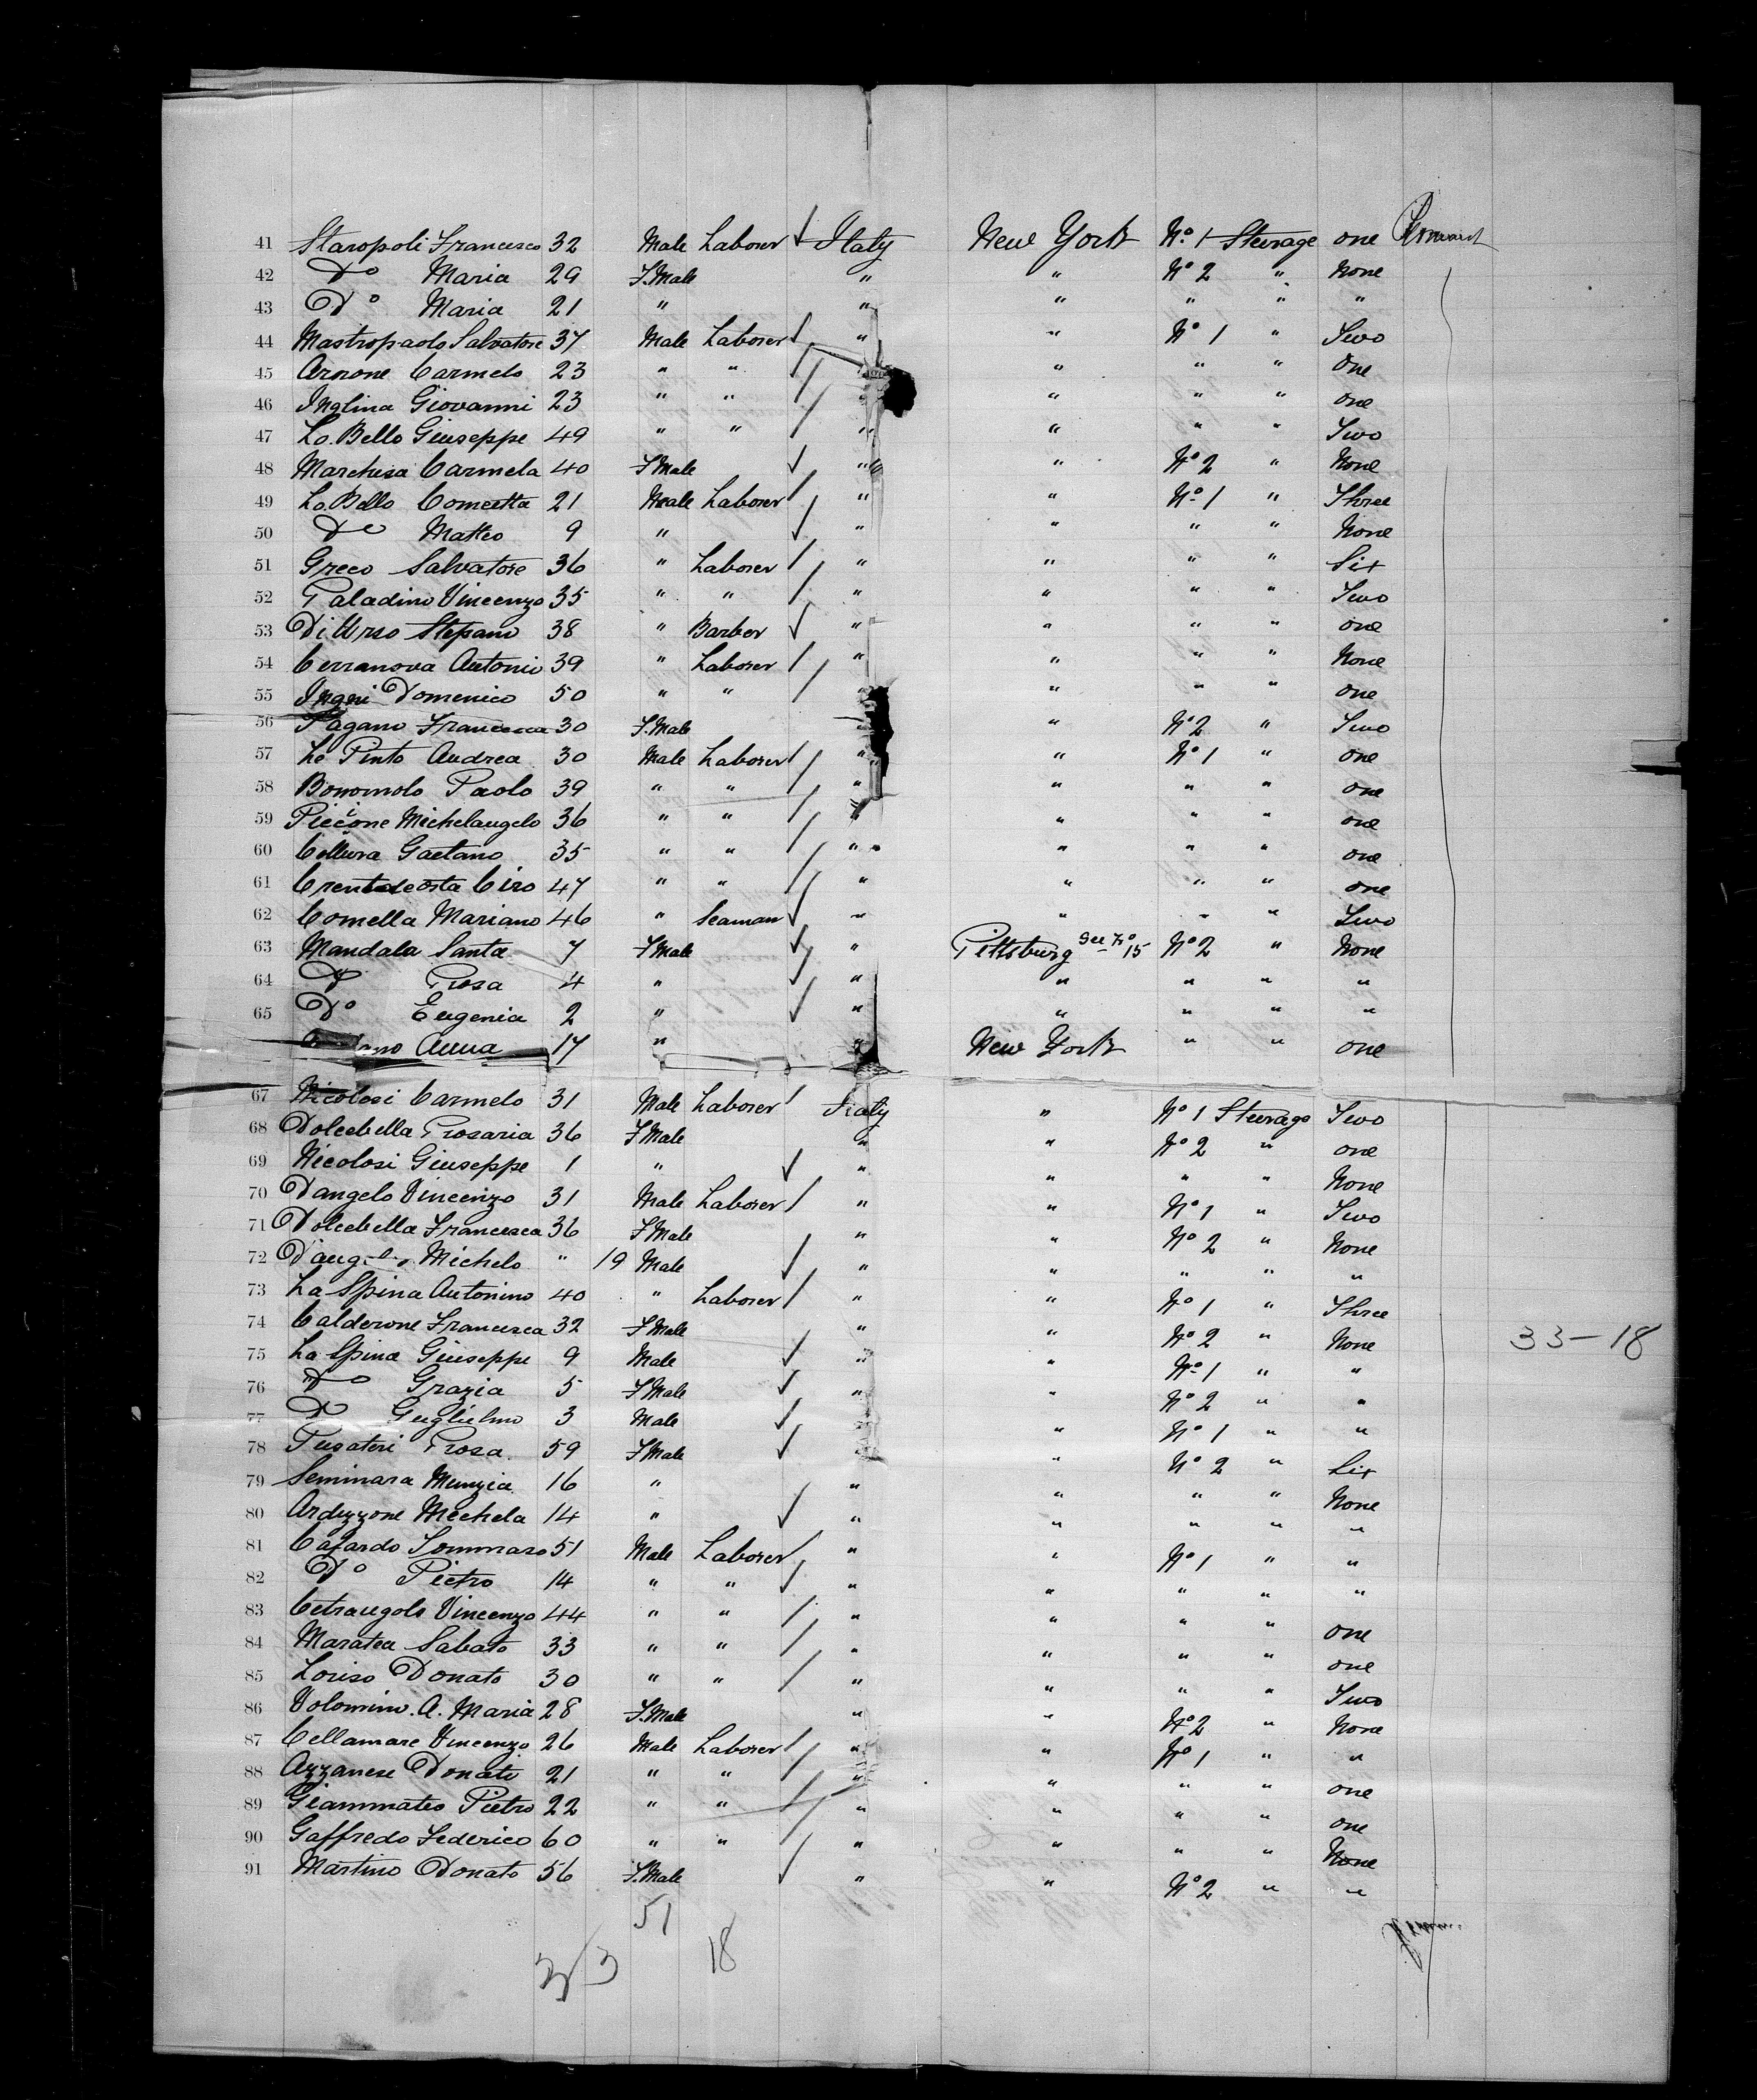 41 Staropoli Francesco 32 Male Laborer Italy New York No. 1 Steerage one
42 Do Maria 29 F.Male " " No 2 " None
43 Do Maria 21 " " " " " "
44 Mastropaolo Salvatore 37 Male Laborer " " No 1 " Two
45 Arnone Carmelo 23 " " " " " " one
46 Giovanni 23 " " " " " " one
47 Lo Bello Giuseppe 49 " " " " " " Two
48 Marchesa Carmela 40 F.Male " " No 2 " None
49 Lo Bello 21 Male Laborer " " No 1 " Three
50 Do Matteo 9 " " " " " None
51 Greco Salvatore 36 " Laborer " " " " Six
52 Paladino Vincenzo 35 " " " " " " Two
53 Di Urso Stepano 38 " Barber " " " " one
54 Cerranova Antonio 39 " Laborer " " " " None
55 Domenico 50 " " " " " one
56 Pagano Francesca 30 F.Male " No 2 " Two
57 Lo Pinto Andrea 30 Male Laborer " " No 1 " one
58 Bonomolo Paolo 39 " " " " " " one
59 Piccione Michelangelo 36 " " " " " " one
60 Collura Gaetano 35 " " " " " " one
61 Ciro 47 " " " " " " one
62 Comella Mariano 46 " Seaman " " " " Two
63 Mandala Santa 7 F.Male " Pittsburg See No 15 No 2 " None
64 Do Rosa 4 " " " " " "
65 Do Eugenia 2 " " " " " "
Anna 17 " " New York " " one
67 Nicolosi Carmelo 31 Male Laborer Italy " No 1 Steerage Two
68 Dolcebella Rosaria 36 F.Male " " No 2 " one
69 Nicolosi Giuseppe 1 " " " " " None
70 Dangelo Vincenzo 31 Male Laborer " " No 1 " Two
71 Dolcebella Francesca 36 F.Male " " No 2 " None
72 Michelo " 19 Male " " " " "
73 La Spina Antonino 40 " Laborer " " No 1 " Three
74 Calderone Francesca 32 F.Male " " No 2 " None
33-18
75 La Spina Giuseppe 9 Male " " No 1 " "
76 Do Grazia 5 F.Male " " No 2 " "
77 Do Guglielmo 3 Male " " No 1 " "
78 Pusateri Rosa 59 F.Male " " No 2 " Six
79 Seminara Munzia 16 " " " " " None
80 Ardizzone Mechela 14 " " " " " "
81 Cafardo Tommaso 51 Male Laborer " " No 1 " "
82 Do Pietro 14 " " " " " " "
83 Cetrangolo Vincenzo 44 " " " " " " one
84 Maratea Sabato 33 " " " " " " one
85 Loriso Donato 30 " " " " " " Two
86 Volomino. A. Maria 28 F.Male " " No 2 " None
87 Cellamare Vincenzo 26 Male Laborer " " No 1 " "
88 Azzanese Donato 21 " " " " " " one
89 Giammateo Pietro 22 " " " " " " one
90 Gaffredo Federico 60 " " " " " " None
91 Martino Donato 56 F.Male " " No 2 " "
51
33 18